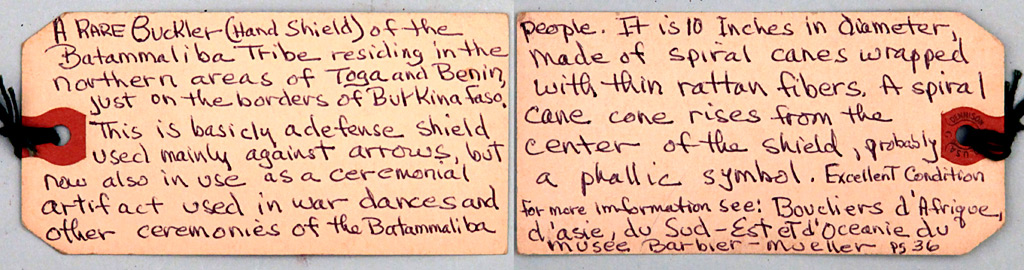 A RARE Buckler (Hand Shield) of the
Batammaliba Tribe residing in the
northern areas of Toga and Benin,
just on the borders of Burkina Faso.
This is basicly a defense shield
used mainly against arrows, but
now also in use as a ceremonial
artifact used in war dances and
other ceremonies of the Batammaliba
people. It is 10 Inches in diameter,
made of spiral canes wrapped
with thin rattan fibers. A spiral
cane cone rises from the
center of the shield, probably
a phallic symbol. Excellent Condition
for more imformation see: Boucliers d'Afrique,
d'asie, du Sud-Est et d'Oceanie du
musee Barbier-Mueller pg 36
DENNISON
U.S.A.